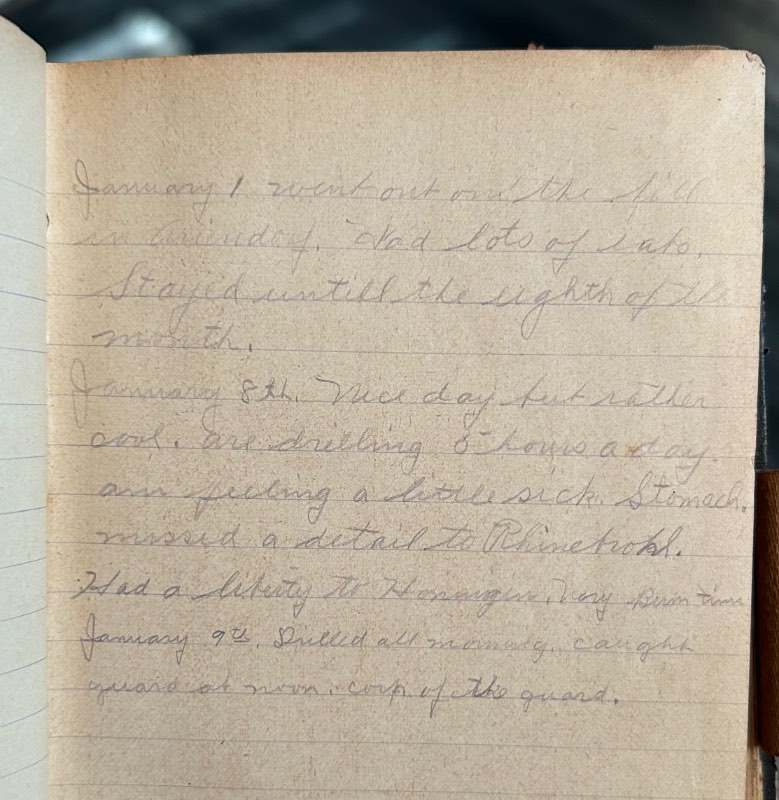 January 1 went out on the hill
in        . Had lots of eats.
Stayed untill the eighth of the
month.
January 8th. Nice day but rather
cool. are drilling 5 hours a day.
am feeling a little sick. Stomach.
missed a detail to Rhinebrohl.
Had a liberty to Honnigen. Very      time
January 9th. Drilled all morning. caught
guard at noon. corp. of the guard.